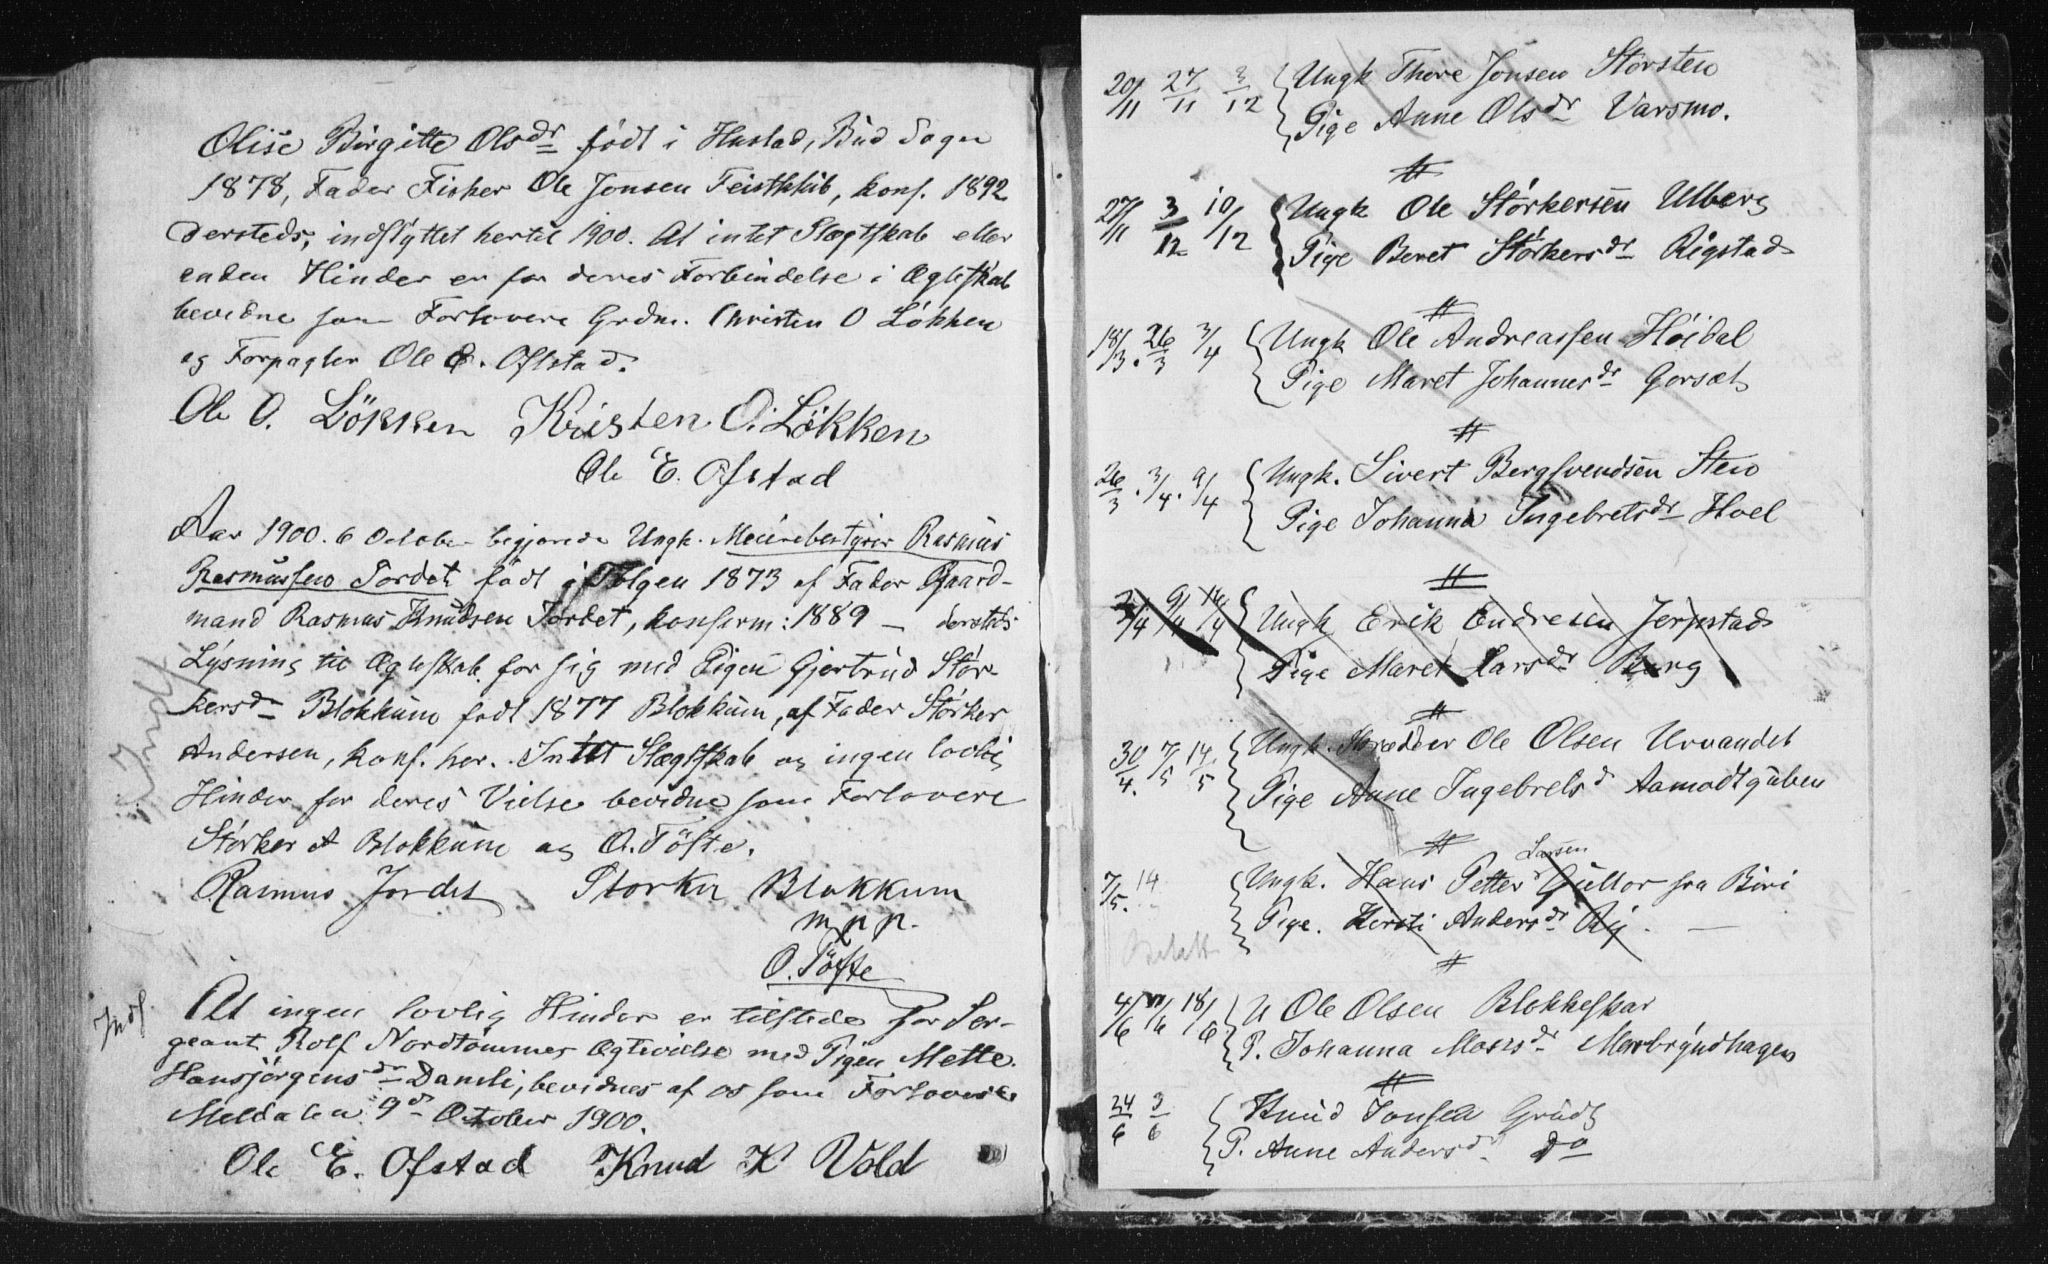 Olise Birgitte Olsdr født i Hustad, Bud Sogn
1878, Fader Fisker Ole Jonsen Teistklub, konf. 1892
dersteds, indflyttet hertil 1900. At intet Slægtskab eller
anden Hinder er for deres Forbindelse i Ægteskab
bevidne som Forlovere Grdm. Christen O Løkken
og Forpagter Ole E. Ofstad.
Ole O. Løkken Kristen O. Løkken
Ole E. Ofstad
Aar 1900. 6 October begjærede Ungk. Meieribestyrer Rasmus
Rasmussen Jordet født i Tolgen 1873 af Fader Gaard-
mand Rasmus Knudsen Jordet, konfirm: 1889 — dersteds
Lysning til Ægteskab for sig med Pigen Gjertrud Stør-
kersdr Blokkum født 1877 Blokkum, af Fader Størker
Andersen, konf. her. Intet Slægtskab og ingen lovlig
Hinder for deres Vielse bevidne som Forlovere
Størker A Blokkum og O. Tøfte.
Rasmus Jordet Storker Blokkum
m p p.
O. Tøfte
Indf.
At ingen lovlig Hinder er tilstede for Ser-
geant Rolf Nordtømmes Ægtevielse med Pigen Mette
Hansjørgensdr Damli, bevidnes af os som Forlovere
Meldalen 9de October 1900.
Ole E. Ofstad Knud K Vold
20/11 27/11 3/12 Ungk Thore Jonsen Storsten
Pige Anne Olsdr Varsmo.
27/11 3/12 10/12 Ungk Ole Størkersen Ulberg
Pige Beret Størkersdr Rigstad
18/3. 26/3 3/4 Ungk Ole Andreassen Høidal
Pige Maret Johannesdr Gorsæt
26/3. 3/4. 9/4 Ungk. Sivert Bergsvendsen Sten
Pige Johanna Ingebretsdr Hoel
2/4 9/4 16/4 Ungk Erik Endresen Jerpstad
Pige Maret Larsdr Berg
30/4. 7/5 14/5 Ungk. Skrædder Ole Olsen Urvandet
Pige Anne Ingebretsd Aamodtgüben
Larsen
7/5. 14 Ungk. Hans Petter Gullor fra Biri
Pige. Kersti Andersdr Ry. —
4/6 11/6 18/6 U Ole Olsen Blokkeskar
P. Johanna Mossdr Merbryndhagen
24/6 3/6 Knud Jonsen Grudt
P. Anne Andersd. Do